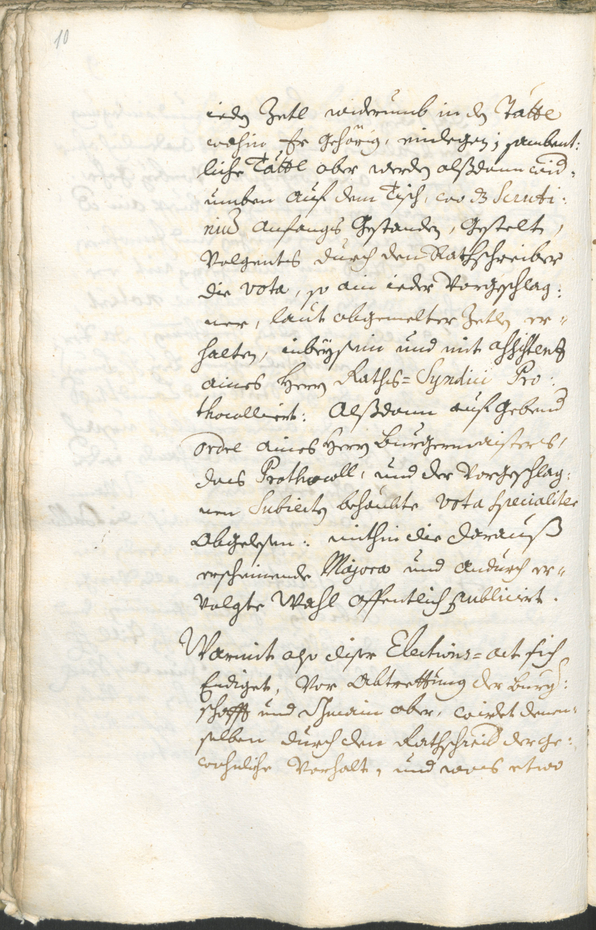 10
ieden Zetl widerumb in den Tättl
wohin Er gehörig, einlegen; sambent:
liche Tättl aber werden alßdann wid-
umben auf dem Tisch, wo dz Scruti:
nium anfangs gestanden, gestelt,
Volgents durch den Rathschreiber
die vota, so ein ieder Vorgeschlag:
ner, laut obgemelter Zetln er-
halten, inbeysein und mit assistenz
aines Herrn Raths=Syndici Pro:
thocolliert: Alßdann auf gebend
Ordre aines Herrn Burgermaisters,
das Prothocoll, und der Vorgeschlag:
nen Subiecten behaubte vota specialiter
Abgelesen: mithin die darauß
erscheinende Majora und andurch er-
volgte Wahl offentlich publiciert.
Warmit also diser Elections=act sich
Endiget, Vor Abtrettung der Burg:
schafft und Gmain aber, wirdet denen-
selben durch den Rathschreiber der ge:
wohnliche Vorhalt, und was etwo